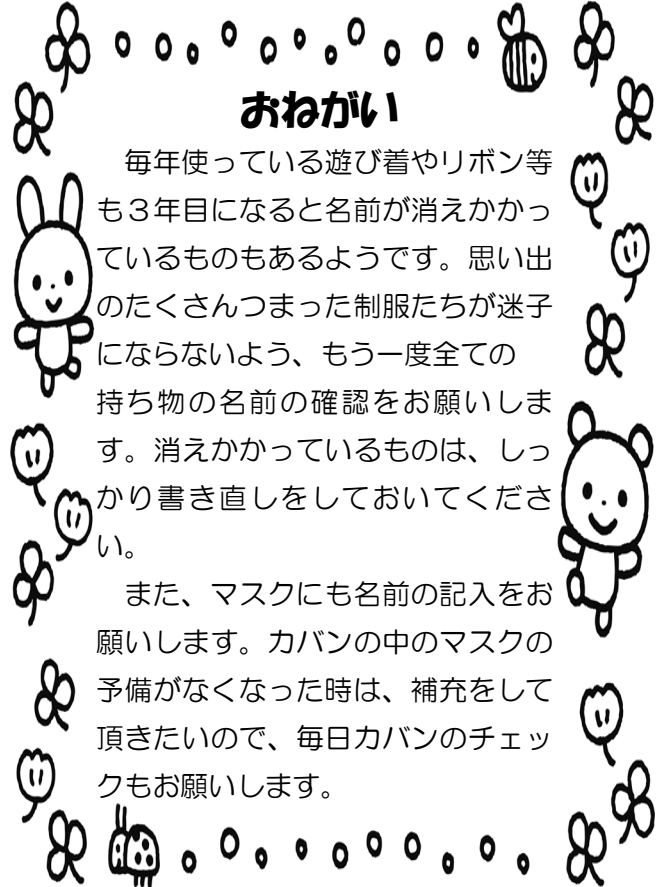 おねがい
　毎年使っている遊び着やリボン等
も３年目になると名前が消えかかっ
ているものもあるようです。思い出
のたくさんつまった制服たちが迷子
にならないよう、もう一度全ての
持ち物の名前の確認をお願いしま
す。消えかかっているものは、しっ
かり書き直しをしておいてくださ
い。
　また、マスクにも名前の記入をお
願いします。カバンの中のマスクの
予備がなくなった時は、補充をして
頂きたいので、毎日カバンのチェッ
クもお願いします。